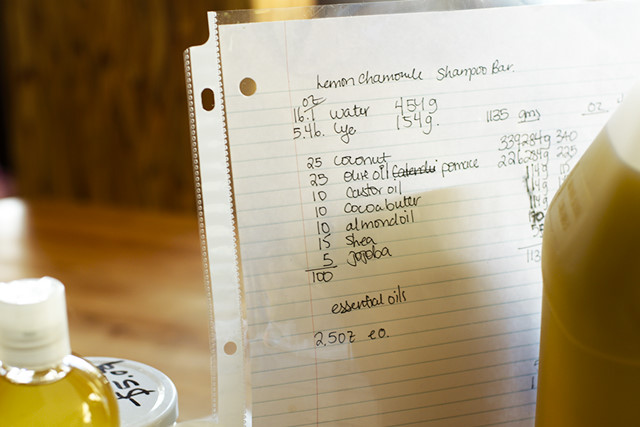 Lemon Chamomile Shampoo Bar.
oz
16.1 water 454g
5.46. lye 154g.
1135 gms oz.
25 coconut 340
25 olive oil pomace 225
10 castor oil
10 cocoa butter
10 almond oil
15 shea
5 jojoba
100
essential oils
2.5oz eo.
$15.0